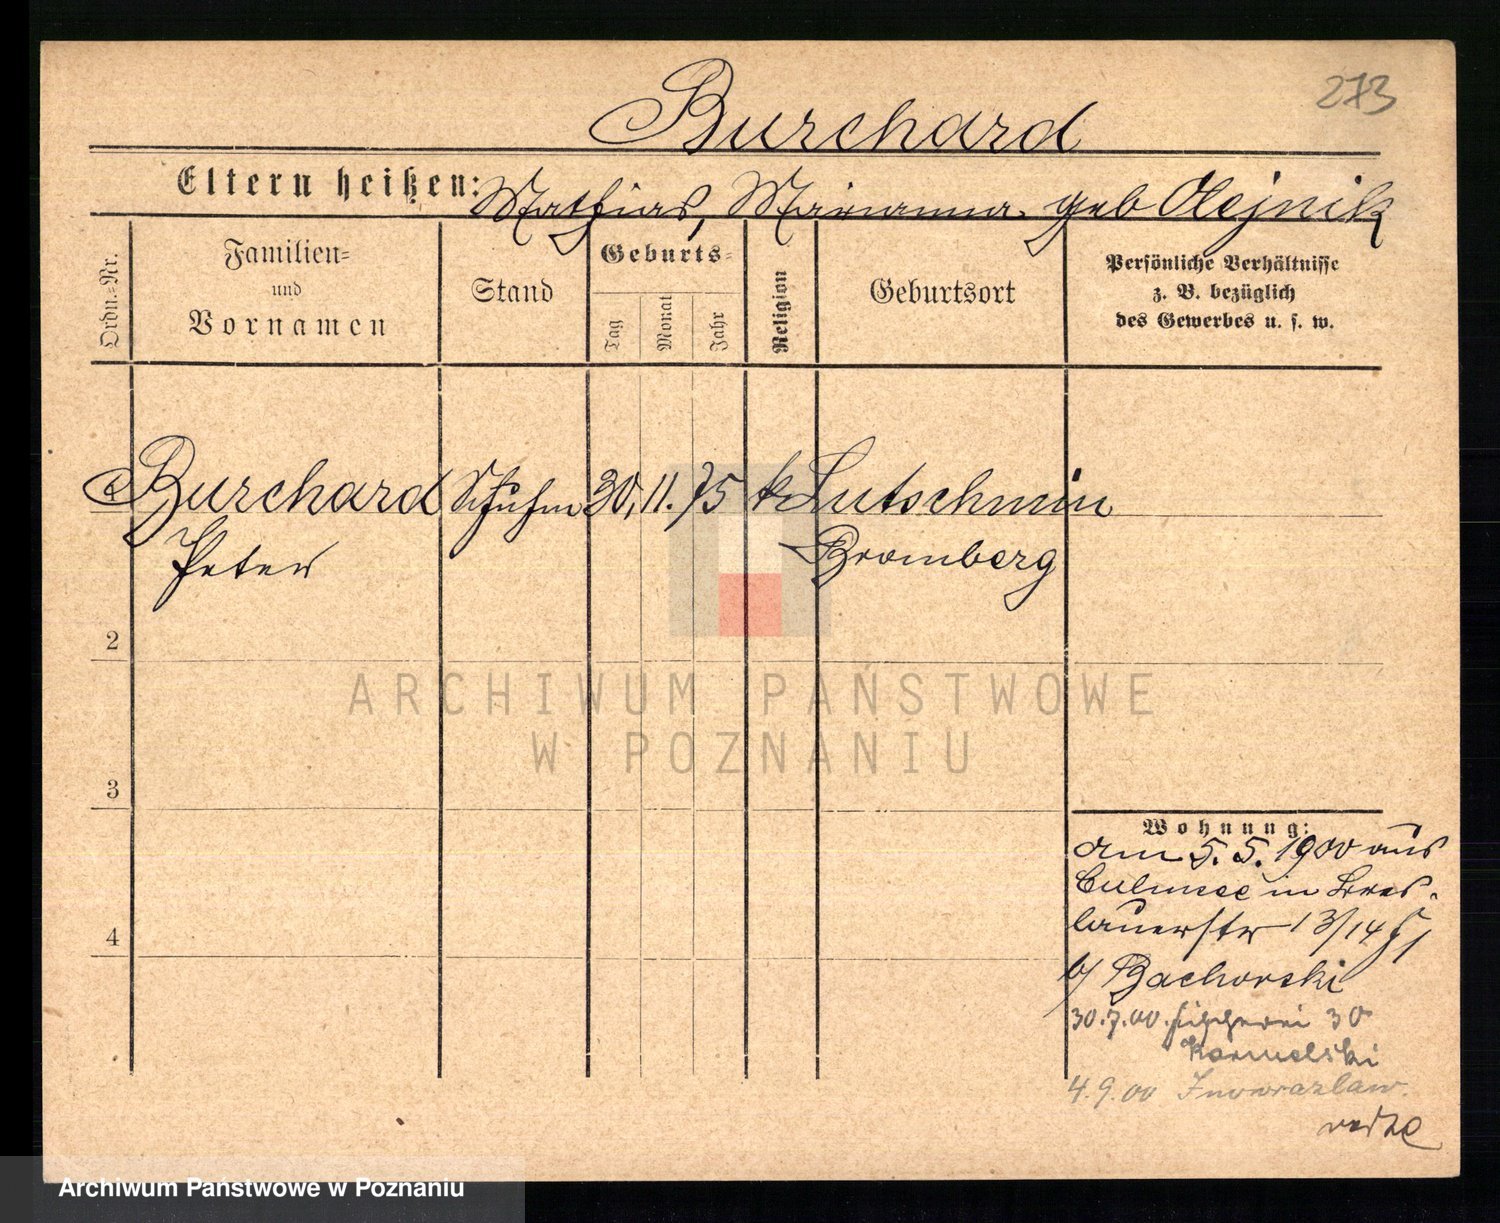 273
Burchard
Eltern heißen: Mathias, Marianna geb Olejnik
Ordn.=Nr.
Familien=
und
Vornamen
Stand
Geburts=
Tag
Monat
Jahr
Religion
Geburtsort
Persönliche Verhältnisse
z. B. bezüglich
des Gewerbes u. s. w.
Burchard Schuhm 30. 11. 75 k Lutschmin
Peter Bromberg
2
3
4
Wohnung:
am 5. 5. 1900 aus
Culmsee in Bres-
lauerstr 13/14
b/ Bachorski
30.7.00. Fischerei 30
Karmelski
4.9.00 Inowrazlaw.
ARCHIWUM PAŃSTWOWE
W POZNANIU
Archiwum Państwowe w Poznaniu